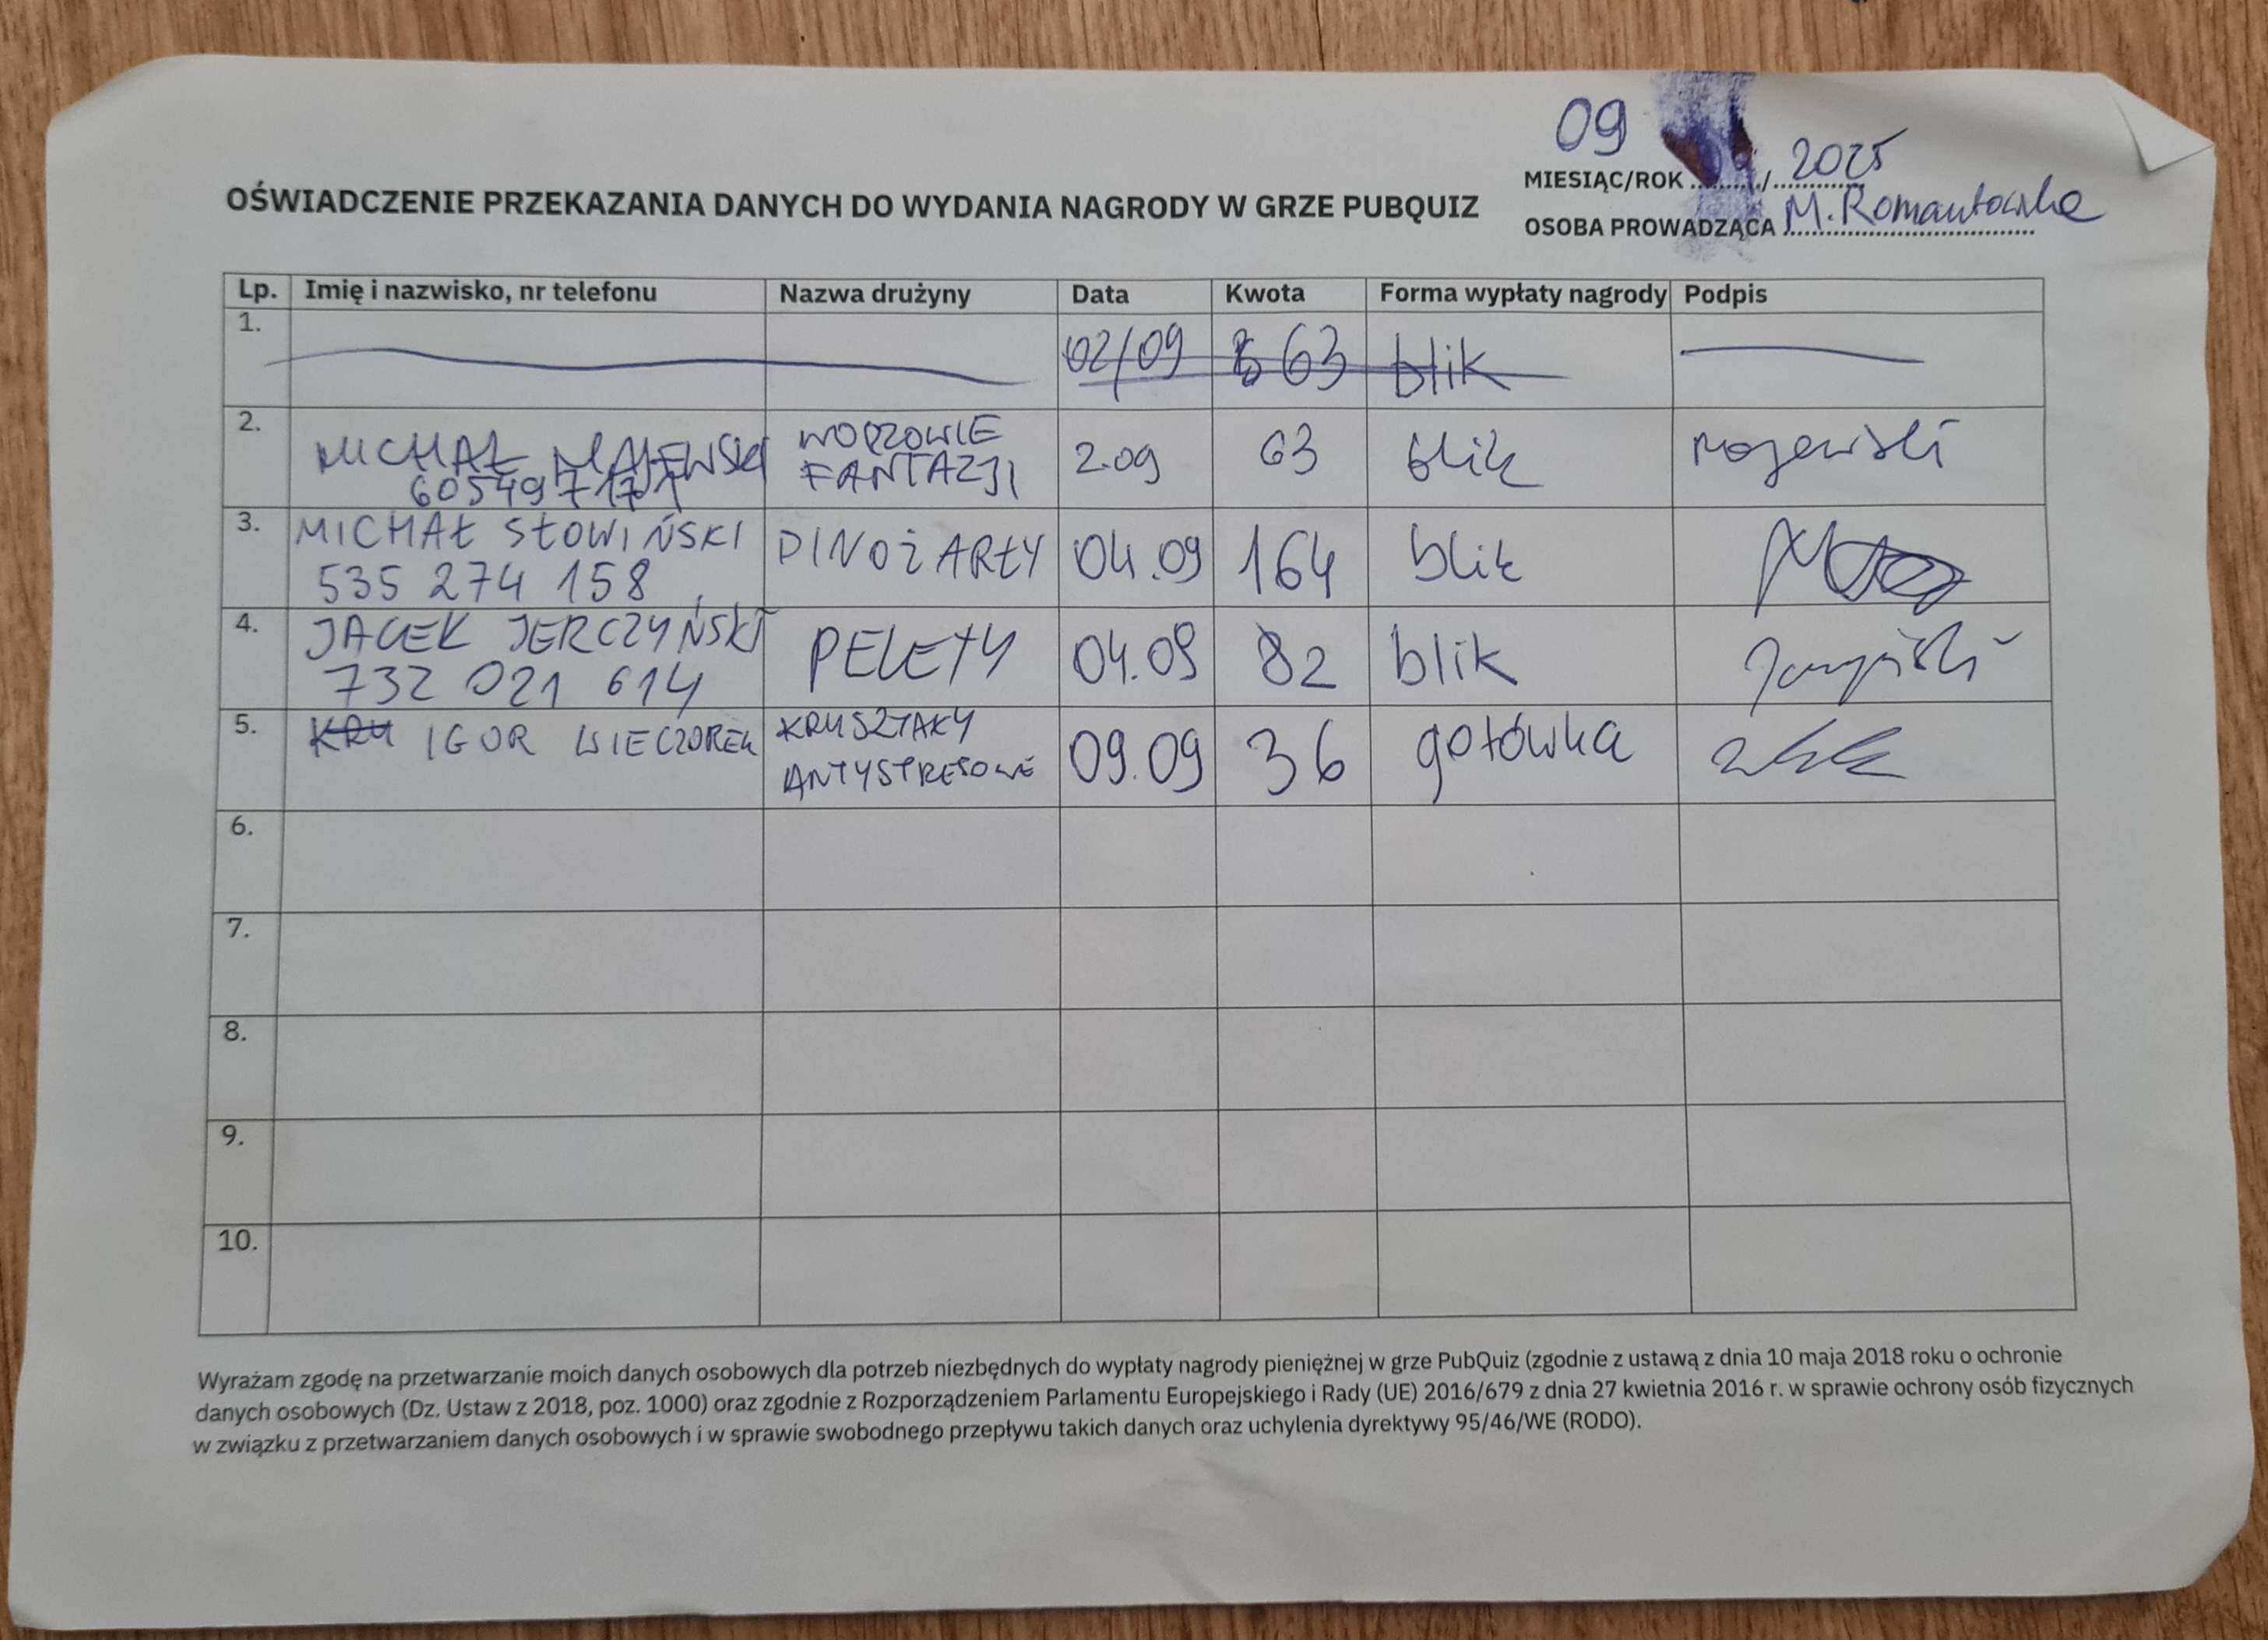 09
2025
MIESIĄC/ROK ........./..........
OŚWIADCZENIE PRZEKAZANIA DANYCH DO WYDANIA NAGRODY W GRZE PUBQUIZ
OSOBA PROWADZĄCA M. Romantowska
Lp. Imię i nazwisko, nr telefonu Nazwa drużyny Data Kwota Forma wypłaty nagrody Podpis
1. 02/09 63 blik
2. MICHAŁ MAJEWSKI WODZOWIE FANTAZJI 2.09 63 blik Majewski
3. MICHAŁ SŁOWIŃSKI DINOŻARŁY 04.09 164 blik
535 274 158
4. JACEK JERCZYŃSKI PELETY 04.09 82 blik
732 021 614
5. KRU IGOR WIECZOREK KRUSZTAKY ANTYSTRESOWE 09.09 36 gotówka
6.
7.
8.
9.
10.
Wyrażam zgodę na przetwarzanie moich danych osobowych dla potrzeb niezbędnych do wypłaty nagrody pieniężnej w grze PubQuiz (zgodnie z ustawą z dnia 10 maja 2018 roku o ochronie
danych osobowych (Dz. Ustaw z 2018, poz. 1000) oraz zgodnie z Rozporządzeniem Parlamentu Europejskiego i Rady (UE) 2016/679 z dnia 27 kwietnia 2016 r. w sprawie ochrony osób fizycznych
w związku z przetwarzaniem danych osobowych i w sprawie swobodnego przepływu takich danych oraz uchylenia dyrektywy 95/46/WE (RODO).